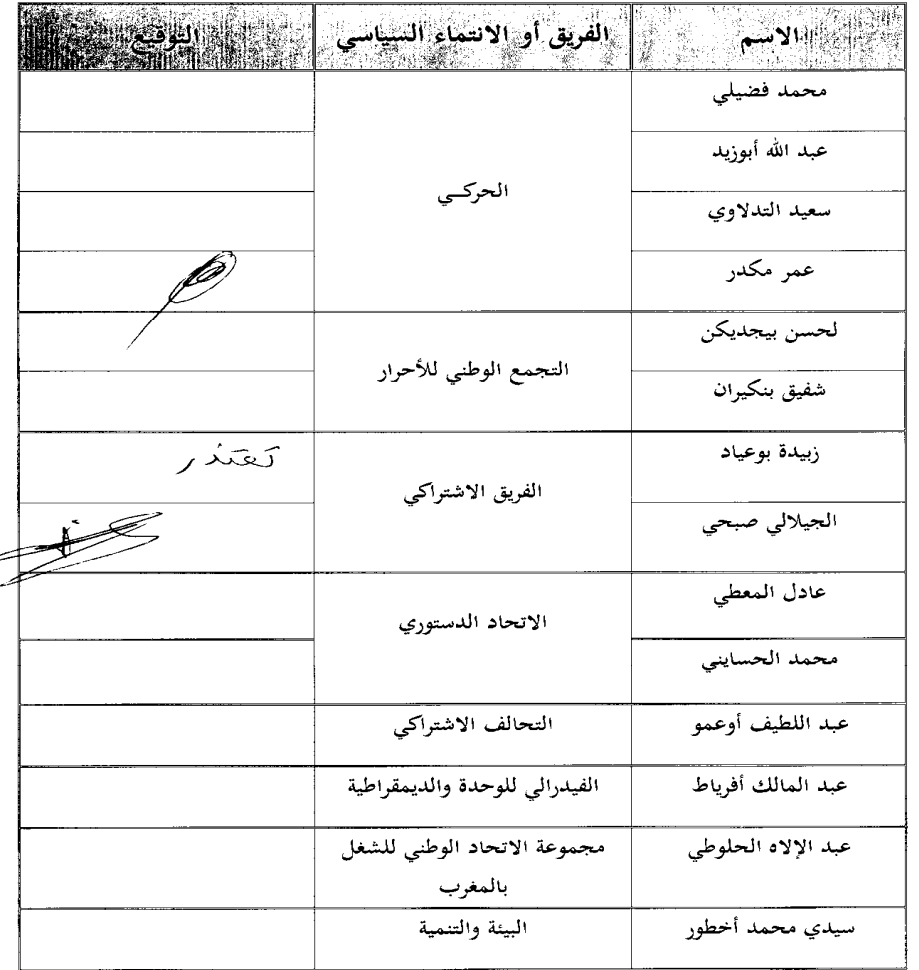 الاسم الفريق أو الانتماء السياسي التوقيع
محمد فضيلي
عبد الله أبوزيد
الحركــي
سعيد التدلاوي
عمر مكدر
لحسن بيجديكن
التجمع الوطني للأحرار
شفيق بنكيران
زبيدة بوعياد تعتذر
الفريق الاشتراكي
الجيلالي صبحي
عادل المعطي
الاتحاد الدستوري
محمد الحسايني
عبد اللطيف أوعمو التحالف الاشتراكي
عبد المالك أفرياط الفيدرالي للوحدة والديمقراطية
عبد الإلاه الحلوطي مجموعة الاتحاد الوطني للشغل
بالمغرب
سيدي محمد أخطور البيئة والتنمية